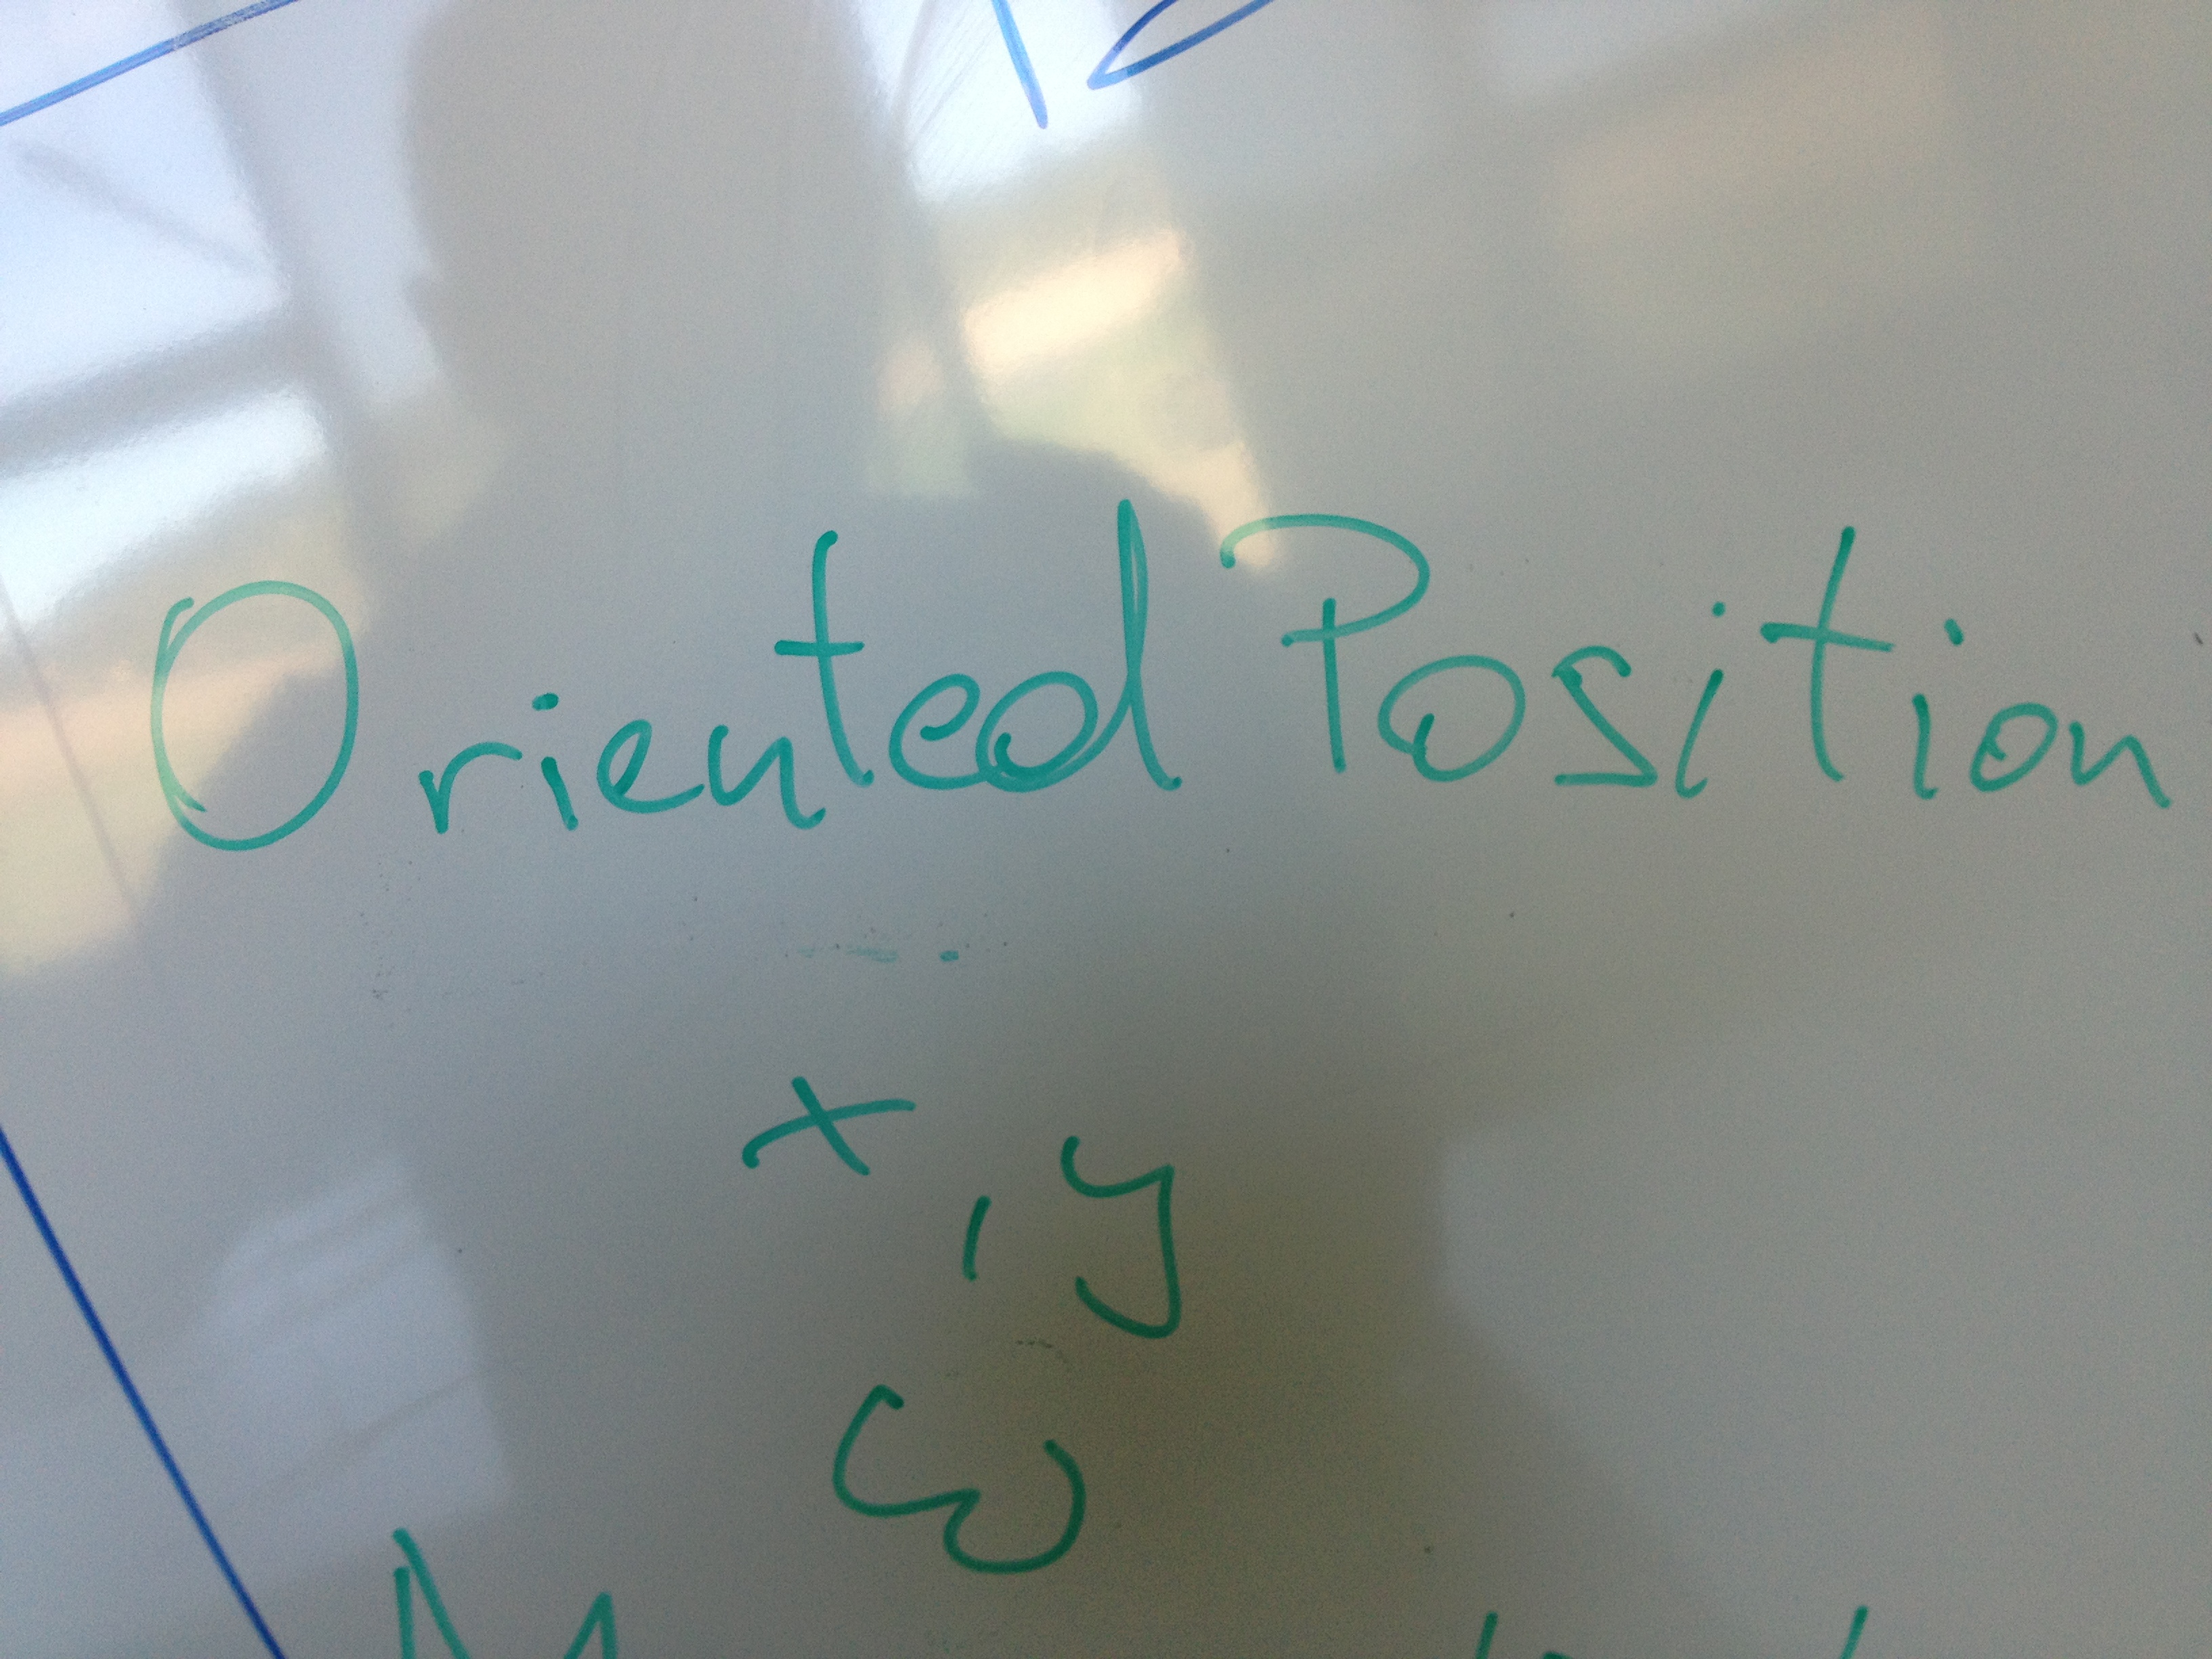 Oriented Position
x, y
ω